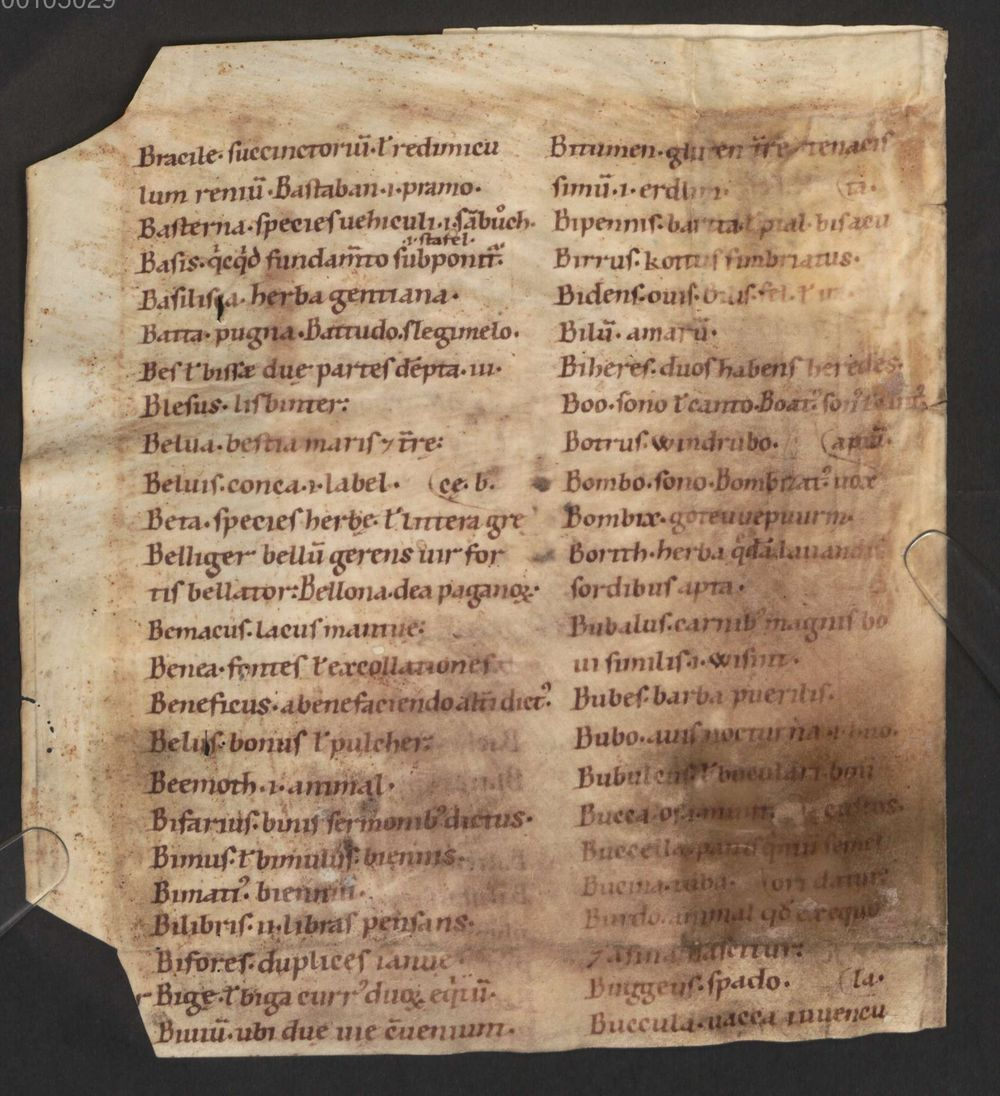 00105029
Bracile· succinctoriū·ł redimicu
lum reniū·Bastaban·ı·pramo·
Basterna·species uehiculi·ı·sābůch·
·ı·stafel·
Basis·qͥcqͥd fundam̄to subponit᷑·
Basilissa·herba gentiana·
Batta·pugna·Battudo·slegimelo·
Bes ł bissæ due partes dēpta·ııı·
Blesus·lisbinter:
Belua·bestia maris ⁊ t̄re:
Beluis·conca·ı·label·
(ęe·b·
Beta·species herbę·ł littera gre
Belliger bellū gerens uir for
tis bellator:Bellona·dea paganoꝝ·
Bemacus·lacus mantue:
Benea·fontes ł excollationes
Beneficus·abenefaciendo alt̄i dict᾿
Belus·bonus ł pulcher:
Beemoth·ı·animal·
Bifarius·binis sermonib᾿dictus·
Bimus·ł bimulus·biennis·
Bimat᾿ biennii·
Bilibris·ıı·libras pensans·
Bifores·duplices ianue
Bige·ł biga curr᾿ duoꝝ eqͥū·
Biuiū·ubi due uie c̄ueniunt·
Bitumen·gluten t̄re tenacis
simū·ı·erdlim·
(ta·
Bipennis·barta ł pial·bisacu
Birrus·kottus fimbriatus·
Bidens·ouis·Bilis·fel·ł
Bilū·amarū·
Biheres·duos habens heredes·
Boo·sono ł canto·Boat᾿ son᾿
Botrus·windrubo·
(apiū·
Bombo·sono·Bombizat᾿ uox
Bombix·goteuuepuurm·
Borith·herba qͣdā lauandis
sordibus apta·
Bubalus·carnib᾿ magnis bo
ui similis·ı·wisint·
Bubes·barba puerilis·
Bubo·auis nocturna·ı·huo·
Bubulcus ł bocuları boū
Bucca·os
castos·
Buccella·panis
Bucina·tuba·
(ori datur:
Burdo·animal qđ ex equo
⁊ asina nascitur:
Binggeus·spado·
(la·
Buccula·uacca iuuencu